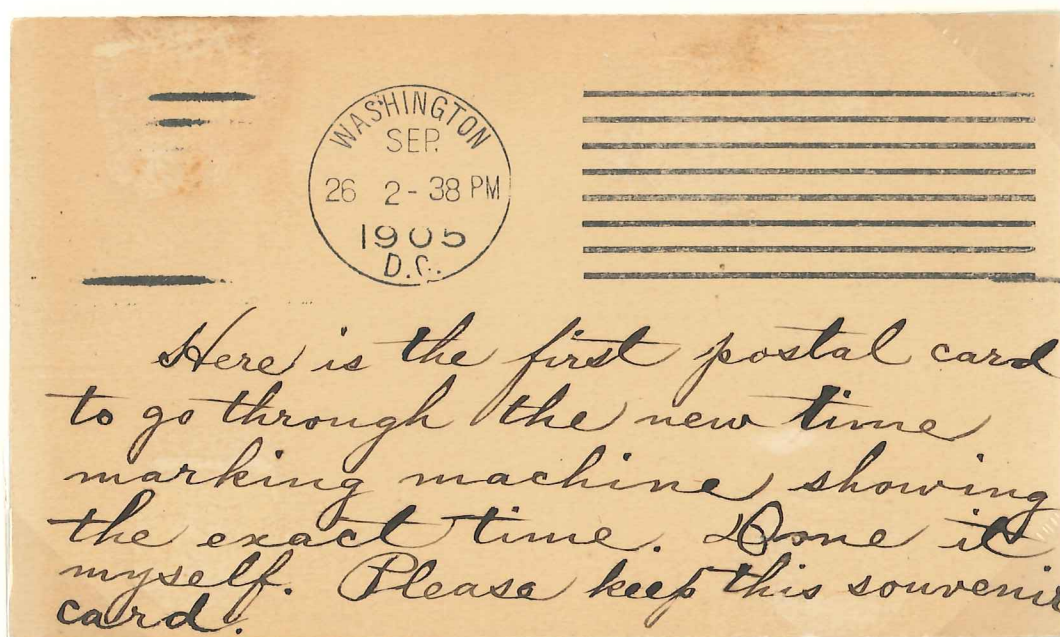 WASHINGTON
SEP.
26 2-38 PM
1905
D.C.
Here is the first postal card
to go through the new time
marking machine showing
the exact time. Done it
myself. Please keep this souvenir
card.